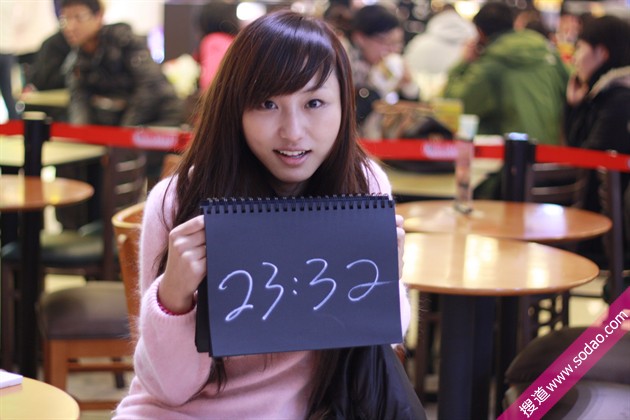 23:32
搜道www.sodao.com